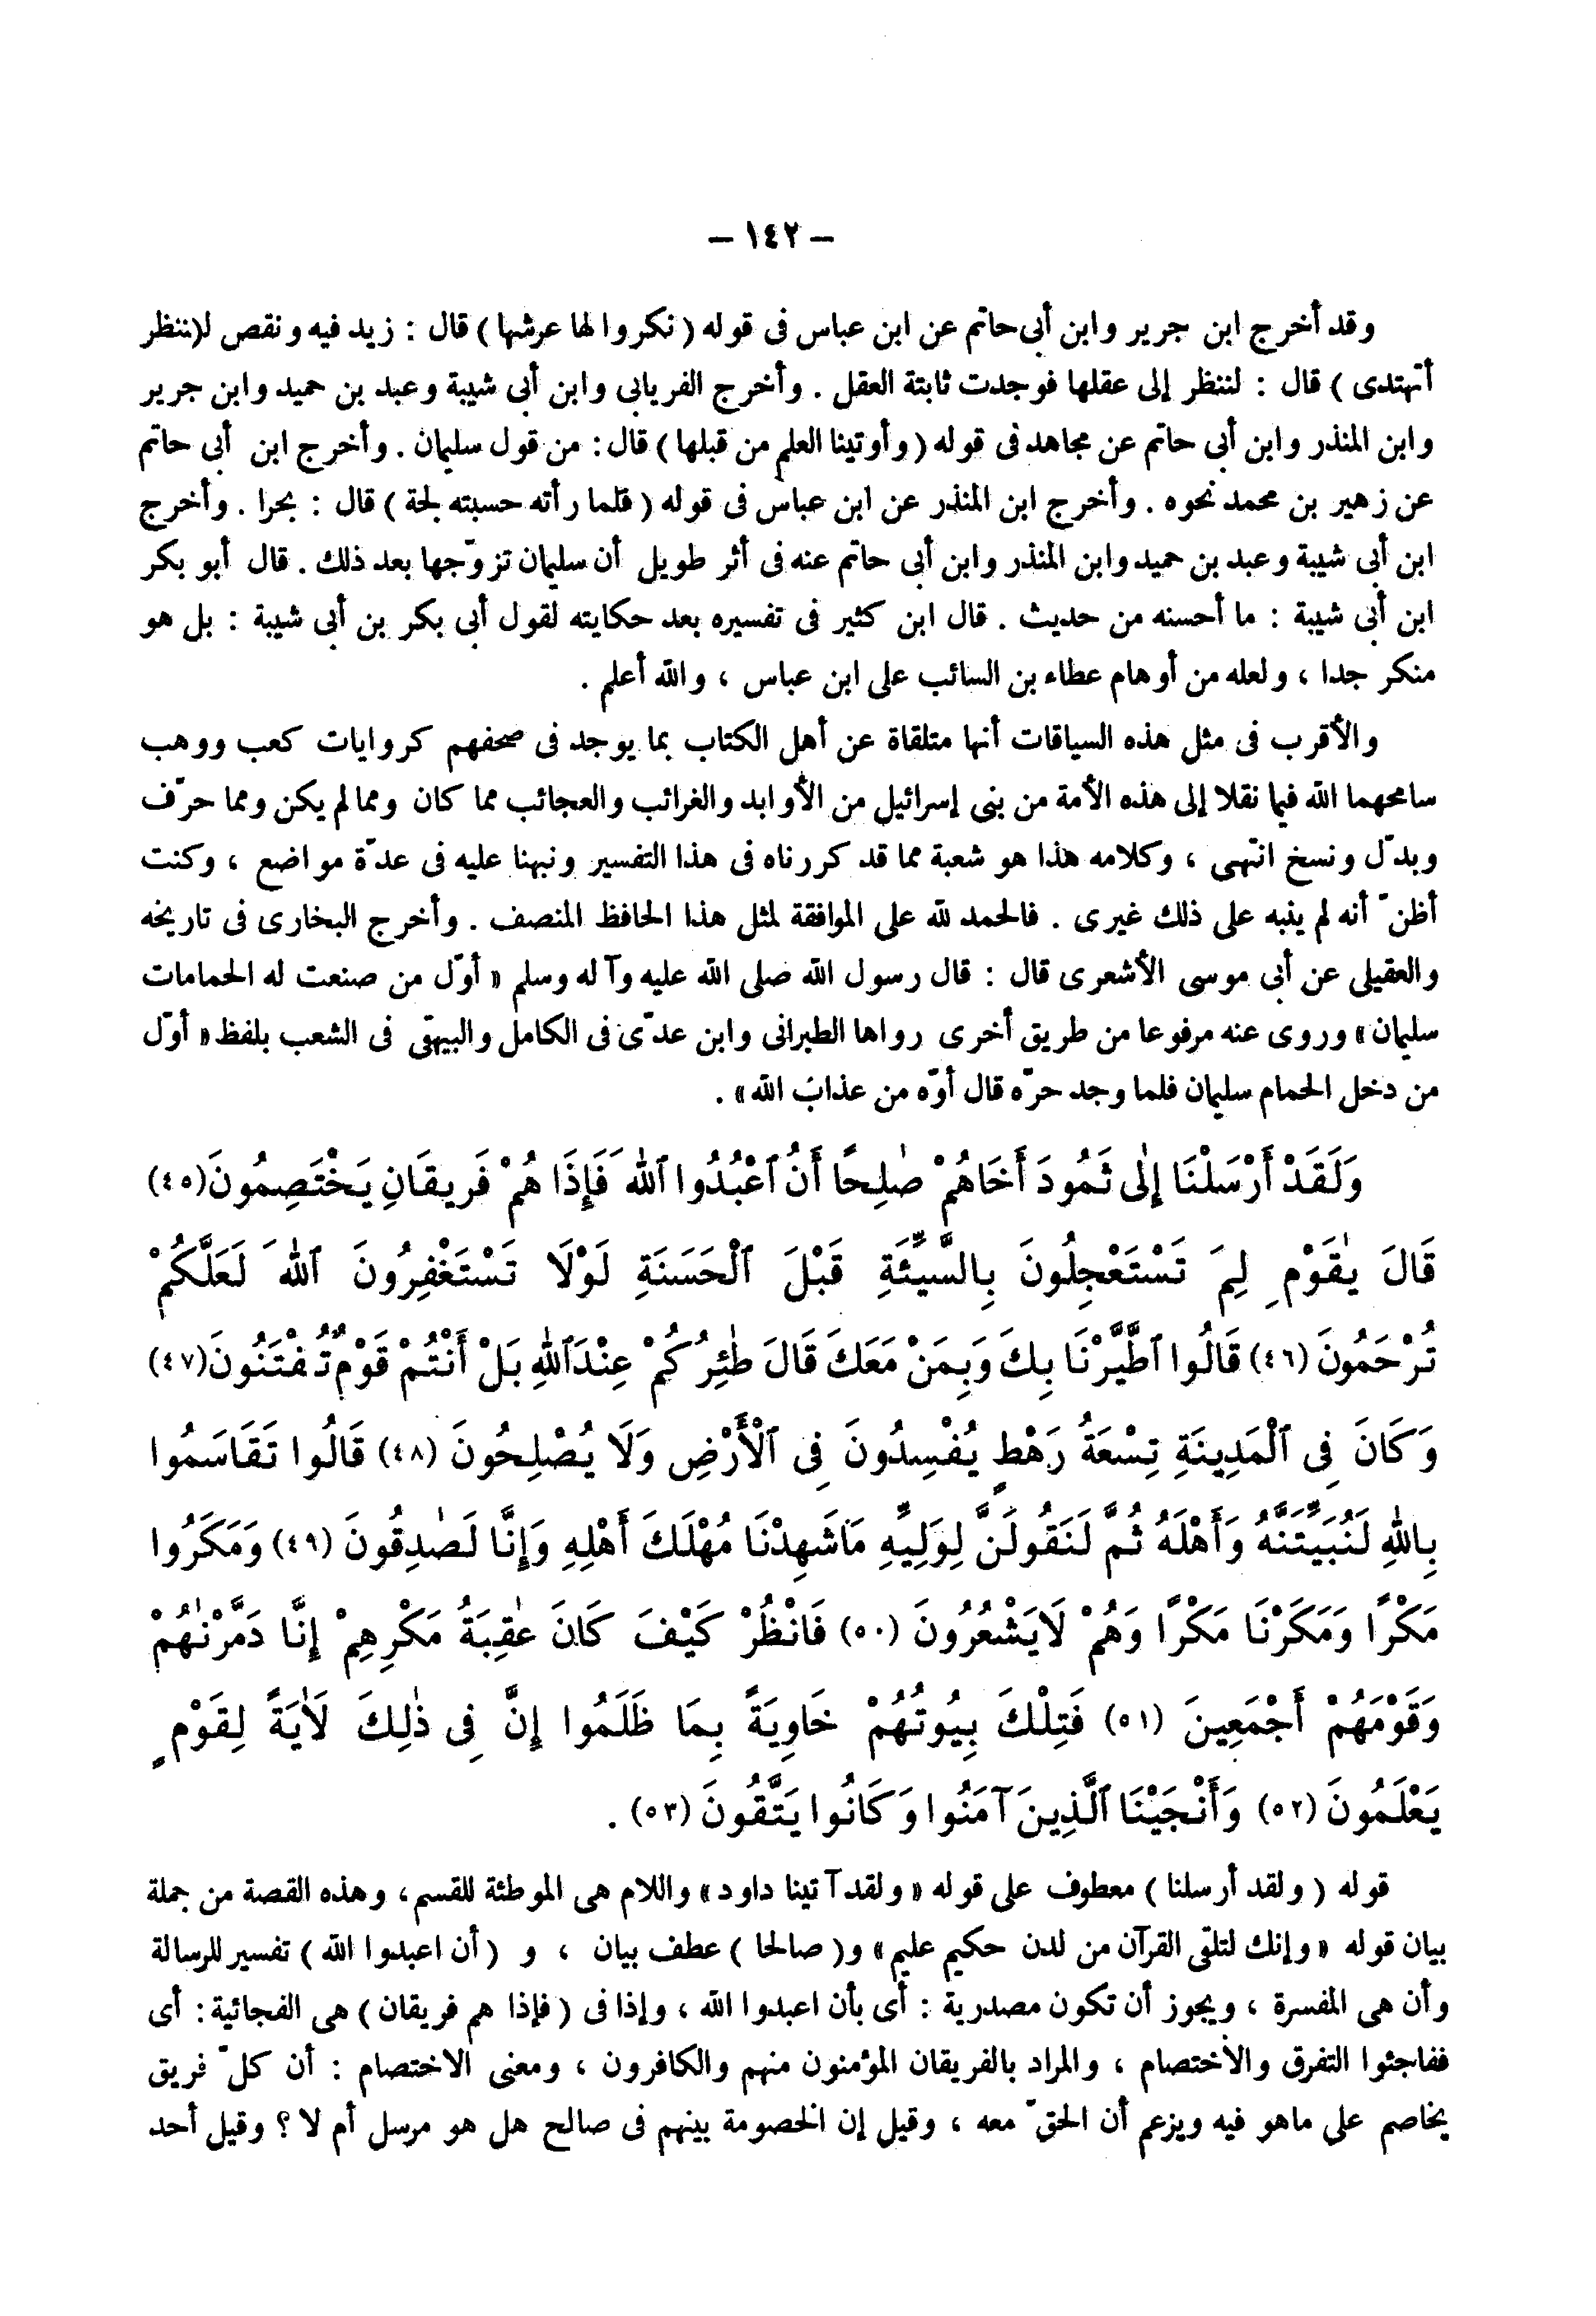 – ١٤٢ –
وقد أخرج ابن جرير وابن أبى حاتم عن ابن عباس فى قوله ( نكروا لها عرشها ) قال : زيد فيه ونقص ل(ننظر
أتهتدى ) قال : لننظر إلى عقلها فوجدت ثابتة العقل . وأخرج الفريابى وابن أبى شيبة وعبد بن حميد وابن جرير
وابن المنذر وابن أبى حاتم عن مجاهد فى قوله ( وأوتينا العلم من قبلها ) قال : من قول سليمان . وأخرج ابن أبى حاتم
عن زهير بن محمد نحوه . وأخرج ابن المنذر عن ابن عباس فى قوله ( فلما رأته حسبته لجة ) قال : بحرا . وأخرج
ابن أبى شيبة وعبد بن حميد وابن المنذر وابن أبى حاتم عنه فى أثر طويل أن سليمان تزوّجها بعد ذلك . قال أبو بكر
ابن أبى شيبة : ما أحسنه من حديث . قال ابن كثير فى تفسيره بعد حكايته لقول أبى بكر بن أبى شيبة : بل هو
منكر جدا ، ولعله من أوهام عطاء بن السائب على ابن عباس ، والله أعلم .
والأقرب فى مثل هذه السياقات أنها متلقاة عن أهل الكتاب بما يوجد فى صحفهم كروايات كعب ووهب
سامحهما الله فيما نقلا إلى هذه الأمة من بنى إسرائيل من الأوابد والغرائب والعجائب مما كان ومما لم يكن ومما حرّف
وبدّل ونسخ انتهى ، وكلامه هذا هو شعبة مما قد كررناه فى هذا التفسير ونبهنا عليه فى عدّة مواضع ، وكنت
أظنّ أنه لم ينبه على ذلك غيرى . فالحمد لله على الموافقة لمثل هذا الحافظ المنصف . وأخرج البخارى فى تاريخه
والعقيلى عن أبى موسى الأشعرى قال : قال رسول الله صلى الله عليه وآله وسلم « أوّل من صنعت له الحمامات
سليمان » وروى عنه مرفوعا من طريق أخرى رواها الطبرانى وابن عدّى فى الكامل والبيهقى فى الشعب بلفظ « أوّل
من دخل الحمام سليمان فلما وجد حرّه قال أوّه من عذاب الله » .
وَلَقَدْ أَرْسَلْنَا إِلٰى ثَمُودَ أَخَاهُمْ صٰلِحًا أَنُ ٱعْبُدُوا ٱللهَ فَإِذَا هُمْ فَرِيقَانِ يَخْتَصِمُونَ (٤٥)
قَالَ يٰقَوْمِ لِمَ تَسْتَعْجِلُونَ بِالسَّيِّئَةِ قَبْلَ ٱلْحَسَنَةِ لَوْلَا تَسْتَغْفِرُونَ ٱللهَ لَعَلَّكُمْ
تُرْحَمُونَ (٤٦) قَالُوا ٱطَّيَّرْنَا بِكَ وَبِمَنْ مَعَكَ قَالَ طٰئِرُكُمْ عِنْدَ ٱللهِ بَلْ أَنْتُمْ قَوْمٌ تُفْتَنُونَ (٤٧)
وَكَانَ فِى ٱلْمَدِينَةِ تِسْعَةُ رَهْطٍ يُفْسِدُونَ فِى ٱلْأَرْضِ وَلَا يُصْلِحُونَ (٤٨) قَالُوا تَقَاسَمُوا
بِاللهِ لَنُبَيِّتَنَّهُ وَأَهْلَهُ ثُمَّ لَنَقُولَنَّ لِوَلِيِّهِ مَا شَهِدْنَا مُهْلَكَ أَهْلِهِ وَإِنَّا لَصٰدِقُونَ (٤٩) وَمَكَرُوا
مَكْرًا وَمَكَرْنَا مَكْرًا وَهُمْ لَا يَشْعُرُونَ (٥٠) فَانْظُرْ كَيْفَ كَانَ عٰقِبَةُ مَكْرِهِمْ إِنَّا دَمَّرْنٰهُمْ
وَقَوْمَهُمْ أَجْمَعِينَ (٥١) فَتِلْكَ بِيُوتُهُمْ خَاوِيَةً بِمَا ظَلَمُوا إِنَّ فِى ذٰلِكَ لَأٰيَةً لِقَوْمٍ
يَعْلَمُونَ (٥٢) وَأَنْجَيْنَا ٱلَّذِينَ آمَنُوا وَكَانُوا يَتَّقُونَ (٥٣) .
قوله ( ولقد أرسلنا ) معطوف على قوله « ولقد آتينا داود » واللام هى الموطئة للقسم ، وهذه القصة من جملة
بيان قوله « وإنك لتلقى القرآن من لدن حكيم عليم » و( صالحا ) عطف بيان ، و ( أن اعبدوا الله ) تفسير للرسالة
وأن هى المفسرة ، ويجوز أن تكون مصدرية : أى بأن اعبدوا الله ، وإذا فى ( فإذا هم فريقان ) هى الفجائية : أى
ففاجئوا التفرق والاختصام ، والمراد بالفريقان المؤمنون منهم والكافرون ، ومعنى الاختصام : أن كلّ فريق
يخاصم على ماهو فيه ويزعم أن الحقّ معه ، وقيل إن الخصومة بينهم فى صالح هل هو مرسل أم لا ؟ وقيل أحد